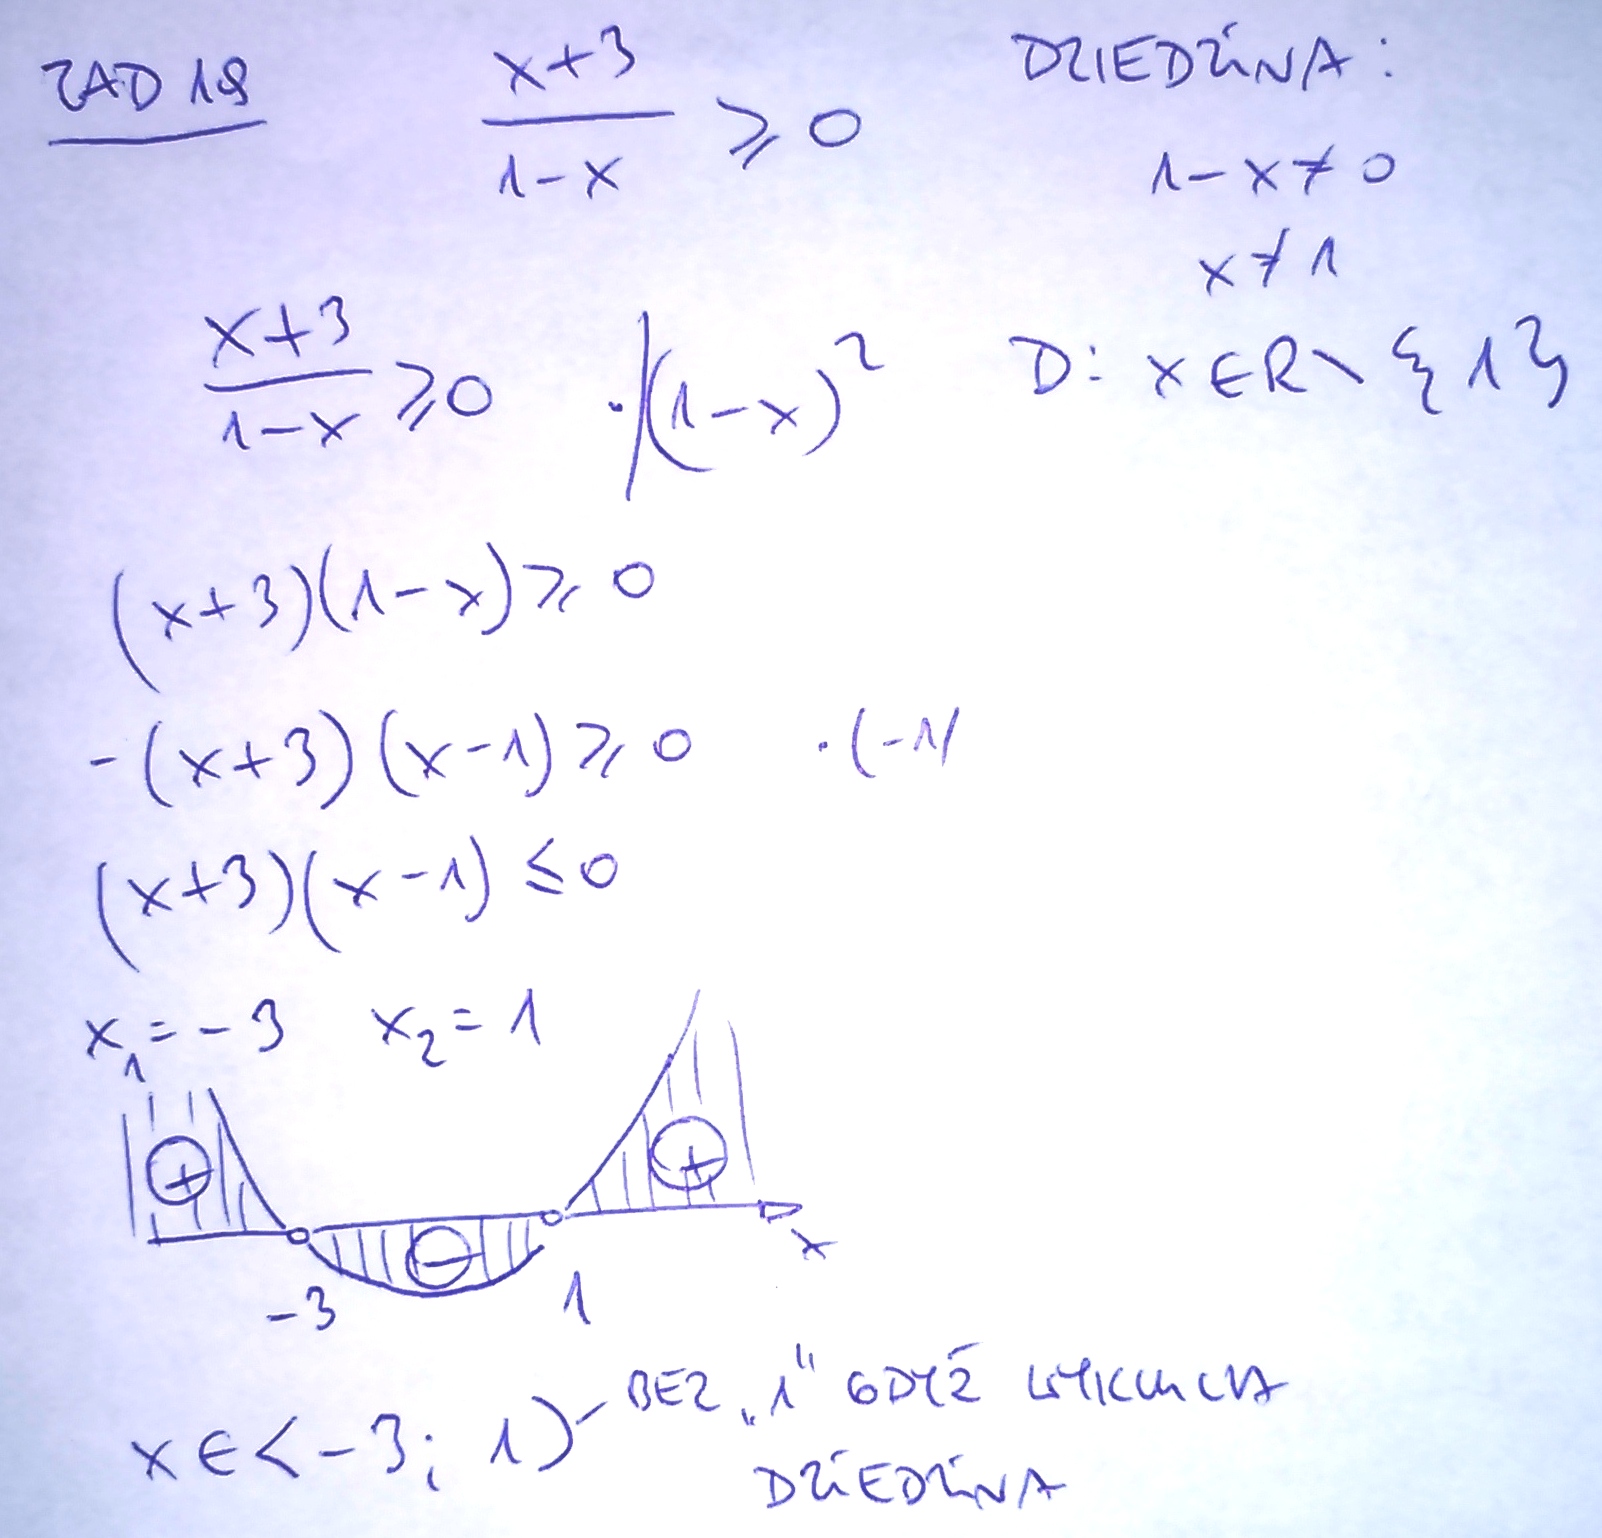 ZAD 18
x+3
―――
1-x
≥ 0
DZIEDZINA:
1-x≠0
x≠1
D: x∈R\{1}
x+3
―――
1-x
≥0 ·/(1-x)²
(x+3)(1-x)≥0
-(x+3)(x-1)≥0 ·(-1)
(x+3)(x-1)≤0
x₁=-3 x₂=1
+ - +
x
-3 1
x∈<-3; 1) - BEZ „1" GDYŻ WYKLUCZA
DZIEDZINA